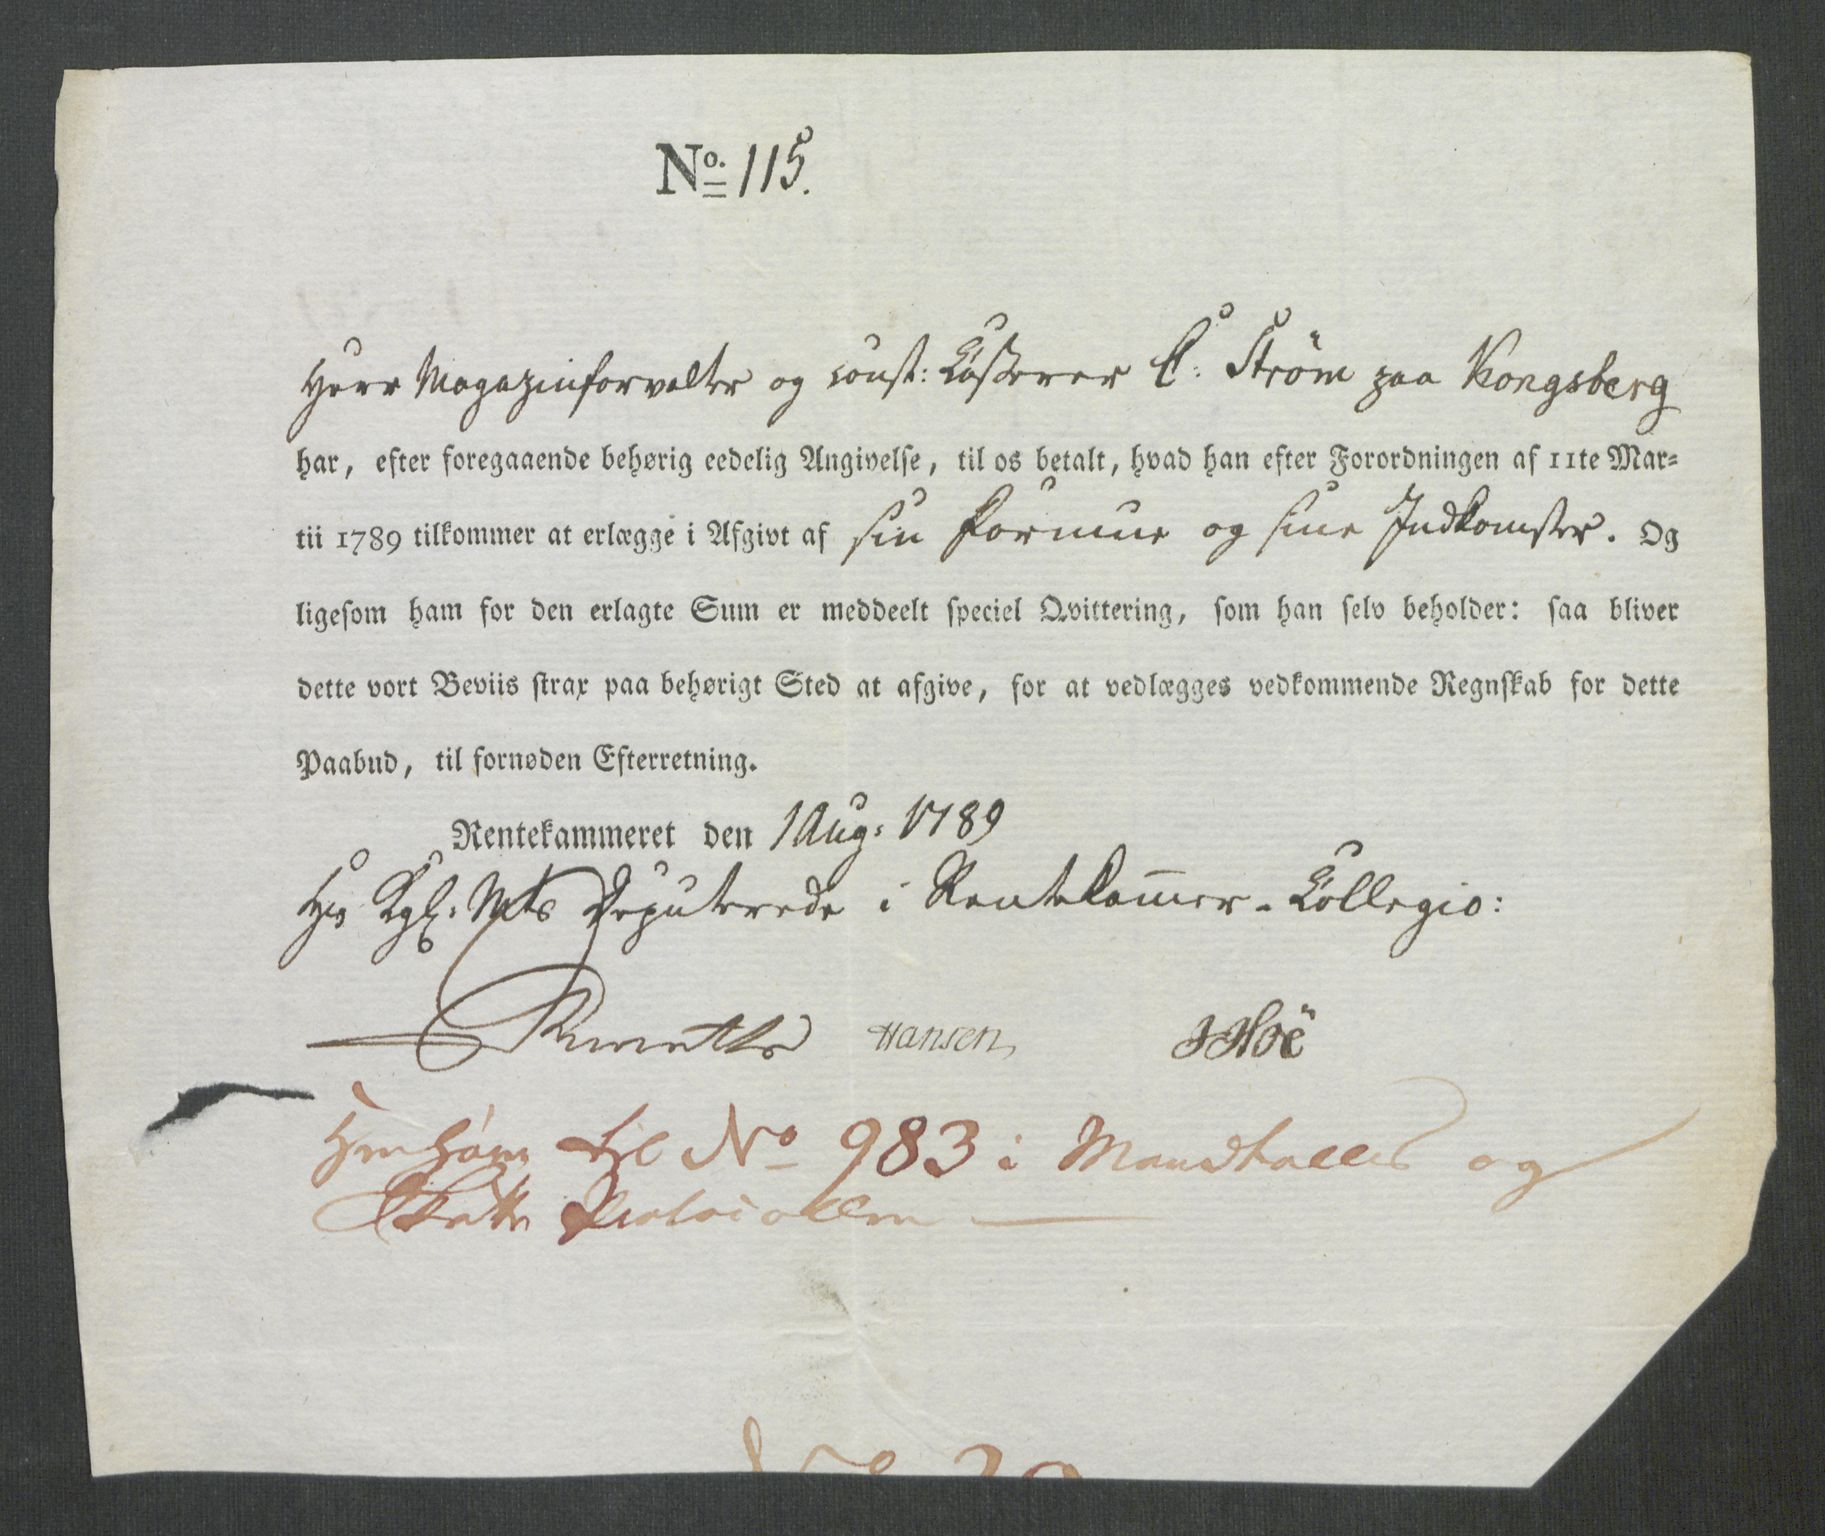 No. 115.
Herr Magazinforvalter og const: Casserer C: Ström paa Kongsberg
har, efter foregaaende behørig eedelig Angivelse, til os betalt, hvad han efter Forordningen af 11te Mar-
tii 1789 tilkommer at erlægge i Afgivt af sin Formue og sine Indkomster. Og
ligesom ham for den erlagte Sum er meddeelt speciel Qvittering, som han selv beholder: saa bliver
dette vort Beviis strax paa behørigt Sted at afgive, for at vedlægges vedkommende Regnskab for dette
Paabud, til fornøden Efterretning.
Rentekammeret den 1 Aug: 1789
Hs Kgl: Mts Deputerede i Rentekam̅er-Collegio:
Hansen, JHoë
Henhører til No 983 i Mandtallets og
Skatte Protocollen
No